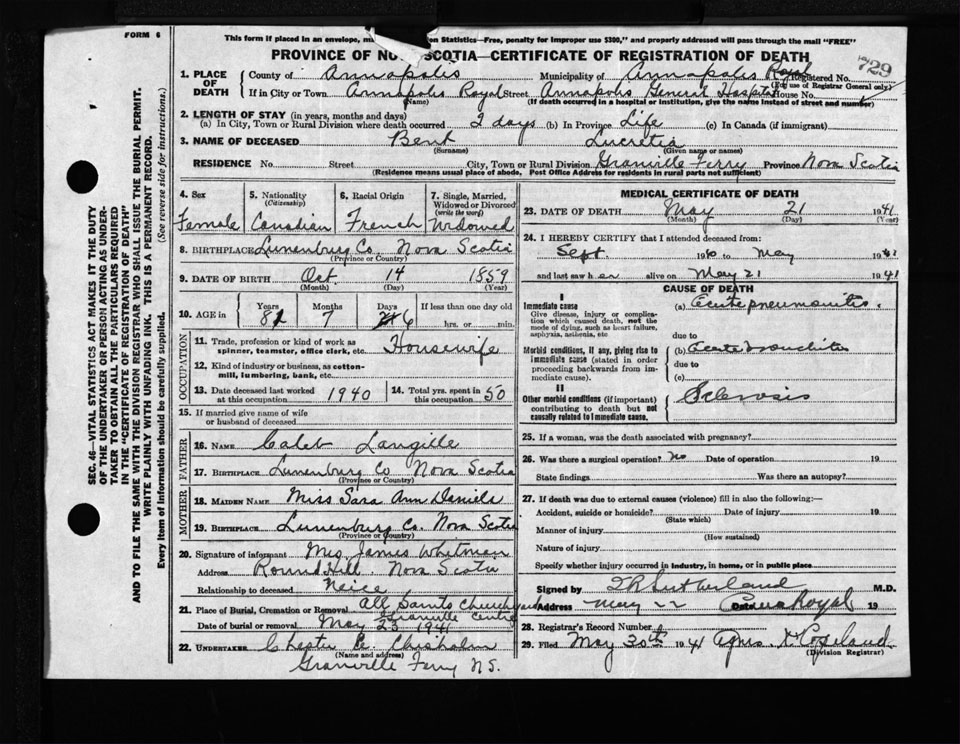 FORM 6
This form if placed in an envelope, Statistics—Free, penalty for improper use $300," and properly addressed will pass through the mail "FREE"
PROVINCE OF NOVA SCOTIA—CERTIFICATE OF REGISTRATION OF DEATH
729
1. PLACE OF DEATH County of Annapolis Municipality of Annapolis Royal Registered No.
(For use of Registrar General only)
If in City or Town Annapolis Royal Street Annapolis General Hospital House No.
(Name) (If death occurred in a hospital or institution, give the name instead of street and number)
2. LENGTH OF STAY (in years, months and days)
(a) In City, Town or Rural Division where death occurred 2 days (b) In Province Life (c) In Canada (if immigrant)
3. NAME OF DECEASED Bent Lucretia
(Surname) (Given name or names)
RESIDENCE No. Street City, Town or Rural Division Granville Ferry Province Nova Scotia
(Residence means usual place of abode. Post Office Address for residents in rural parts not sufficient)
4. Sex Female
5. Nationality (Citizenship) Canadian
6. Racial Origin French
7. Single, Married, Widowed or Divorced (write the word) Widowed
8. BIRTHPLACE Lunenburg Co. Nova Scotia
(Province or Country)
9. DATE OF BIRTH Oct. 14 1859
(Month) (Day) (Year)
10. AGE in Years 81 Months 7 Days 6 If less than one day old hrs. or min.
OCCUPATION
11. Trade, profession or kind of work as spinner, teamster, office clerk, etc. Housewife
12. Kind of industry or business, as cotton-mill, lumbering, bank, etc.
13. Date deceased last worked at this occupation 1940
14. Total yrs. spent in this occupation 50
15. If married give name of wife or husband of deceased
FATHER
16. NAME Caleb Langille
17. BIRTHPLACE Lunenburg Co Nova Scotia
(Province or Country)
MOTHER
18. MAIDEN NAME Miss Sara Ann Daniels
19. BIRTHPLACE Lunenburg Co. Nova Scotia
(Province or Country)
20. Signature of informant Mrs James Whitman
Address Round Hill. Nova Scotia
Relationship to deceased Neice
21. Place of Burial, Cremation or Removal All Saints Churchyard
Granville Centre
Date of burial or removal May 23 1941
22. UNDERTAKER Chisholm
(Name and address)
Granville Ferry N.S.
MEDICAL CERTIFICATE OF DEATH
23. DATE OF DEATH May 21 1941
(Month) (Day) (Year)
24. I HEREBY CERTIFY that I attended deceased from:
Sept. 1940 to May 1941
and last saw her alive on May 21 1941
CAUSE OF DEATH
I
Immediate cause (a) Acute pneumonitis.
Give disease, injury or complication which caused death, not the mode of dying, such as heart failure, asphyxia, asthenia, etc
due to
Morbid conditions, if any, giving rise to immediate cause (stated in order proceeding backwards from immediate cause). (b) Acute Bronchitis
due to
(c)
II
Other morbid conditions (if important) contributing to death but not causally related to immediate cause. Sclerosis
25. If a woman, was the death associated with pregnancy?
26. Was there a surgical operation? No Date of operation 19
State findings Was there an autopsy?
27. If death was due to external causes (violence) fill in also the following:—
Accident, suicide or homicide? Date of injury 19
(State which)
Manner of injury
(How sustained)
Nature of injury
Specify whether injury occurred in industry, in home, or in public place
Signed by Sutherland M.D.
Address May 22 Date Anna Royal 19
28. Registrar's Record Number
29. Filed May 30th 1941 Agnes Copeland
(Division Registrar)
SEC. 46—VITAL STATISTICS ACT MAKES IT THE DUTY
OF THE UNDERTAKER OR PERSON ACTING AS UNDER-
TAKER TO OBTAIN ALL THE PARTICULARS REQUIRED
IN THE "CERTIFICATE OF REGISTRATION OF DEATH"
AND TO FILE THE SAME WITH THE DIVISION REGISTRAR WHO SHALL ISSUE THE BURIAL PERMIT.
WRITE PLAINLY WITH UNFADING INK. THIS IS A PERMANENT RECORD.
Every item of information should be carefully supplied. (See reverse side for instructions.)